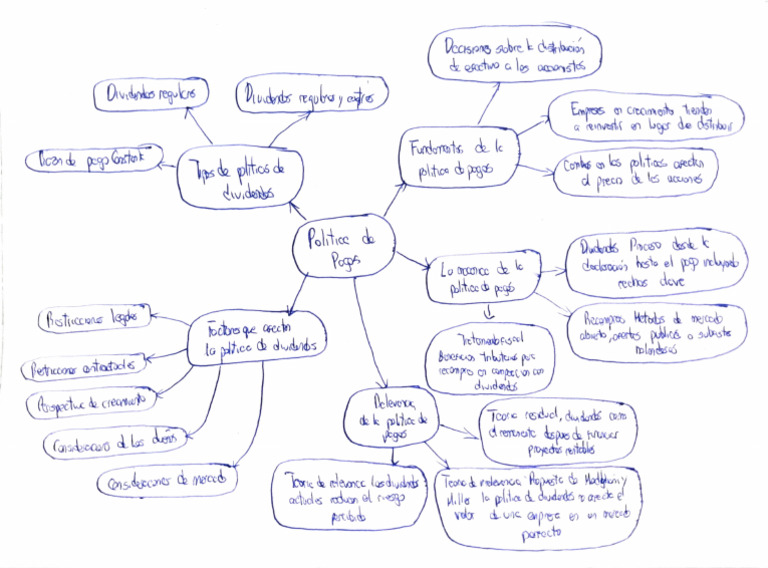 Política de
Pagos
Tipos de políticas de
dividendos
Dividendos regulares
Dividendos regulares y
Razón de pago Constante
Fundamentos de la
política de pagos
Decisiones sobre la distribución
de efectivo a los accionistas
Empresas en crecimiento tienden
a reinvertir en lugar de distribuir
Cambios en las políticas afectan
al precio de las acciones
La mecánica de la
política de pagos
Dividendos Proceso desde la
declaración hasta el pago incluyendo
fechas clave
Recompras Métodos de mercado
abierto, ofertas públicas o subastas
holandesas
Tratamiento fiscal
Beneficios tributarios para
recompras en comparación con
dividendos
Factores que afectan
la política de dividendos
Restricciones legales
Restricciones contractuales
Perspectivas de crecimiento
Consideraciones de los dueños
Consideraciones de mercado
Relevancia
de la política de
pagos
Teoría residual, dividendos como
el remanente después de financiar
proyectos rentables
Teoría de relevancia Los dividendos
actuales reducen el riesgo
percibido
Teoría de Propuesta de Modigliani y
Miller la política de dividendos no afecta el
valor de una empresa en un mercado
perfecto